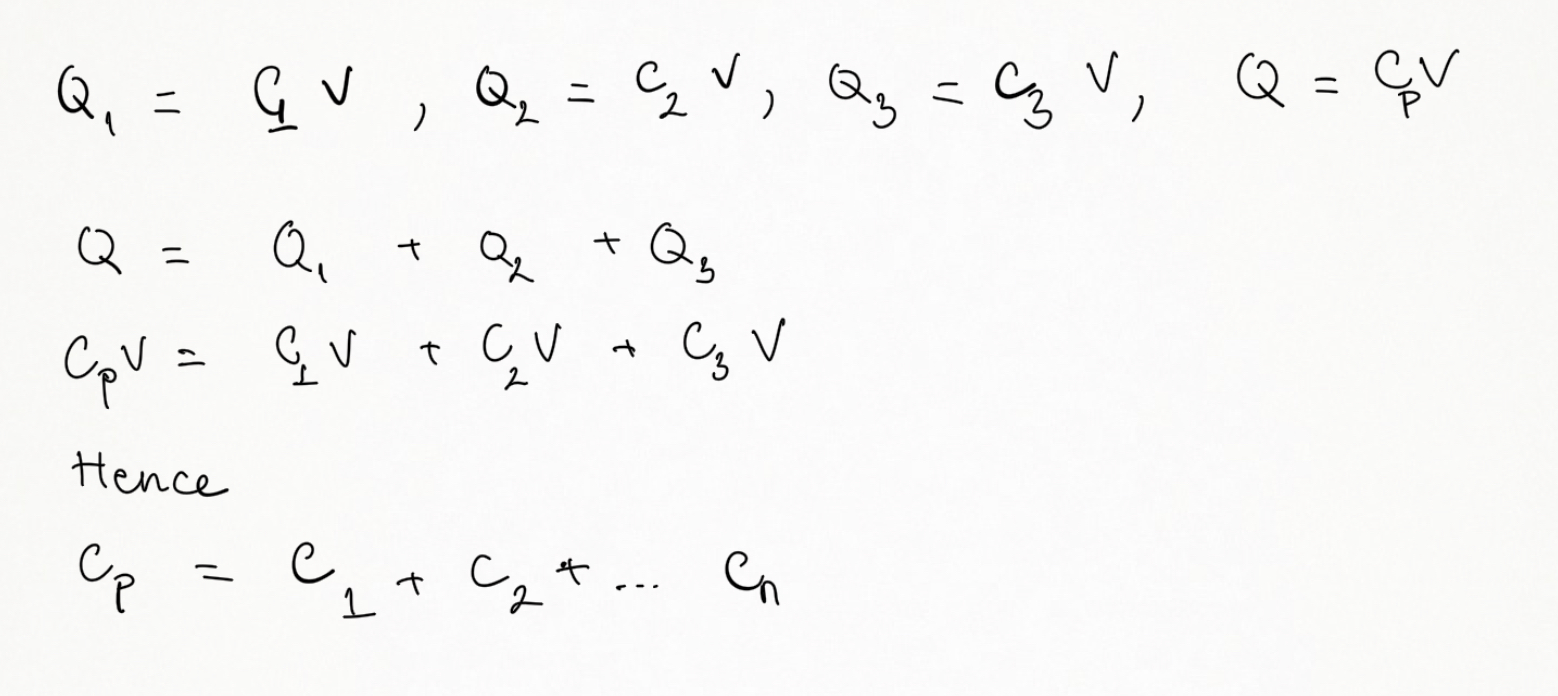 Q₁ = C₁ V , Q₂ = C₂ V , Q₃ = C₃ V , Q = CₚV
Q = Q₁ + Q₂ + Q₃
CₚV = C₁ V + C₂ V + C₃ V
Hence
Cₚ = C₁ + C₂ + ... Cₙ